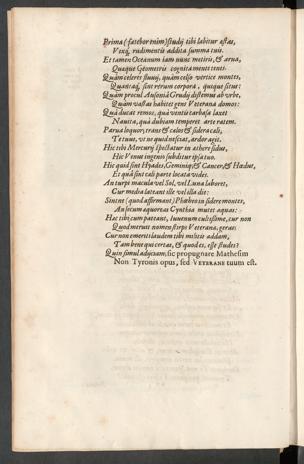 Prima (fatebor enim) studij tibi labitur æstas,
Vixq; rudimentis addita summa tuis.
Et tamen Oceanum iam nunc metiris, & arua,
Quæque Geometris cognita mente tenes.
Quàm celeres fluuij, quàm celso vertice montes,
Quantaq; sint rerum corpora, quiuque situs:
Quàm procul Ausoniâ Grudij distemus ab vrbe,
Quàm vastas habitet gens Veterana domos:
Quà ducat remos, quà ventis carbasa laxet
Nauita, quà dubiam temperet arte ratem.
Parua loquor, trans & calos & sidera cali,
Te tuus, vt ne quid nescias, ardor agit.
Hîc tibi Mercurij spectatur in æthere sidus,
Hîc Venus ingenio subditur ipsa tuo.
Hîc quid sint Hyades, Geminiq; & Cancer, & Hædus,
Et quâ sint cali parte locata vides.
An turpi macula vel Sol, vel Luna laboret,
Cur media lateant ille vel illa die:
Sint ne (quod affirmant) Phœbeo in sidere montes,
An secum æquoreas Cynthia mutet aquas:
Hæc tibi cum pateant, Iuuenum cultissime, cur non
Quod meruit nomen stirps Veterana, geras:
Cur non emeriti laudem tibi militis addam,
Tam bene qui certas, & quod es, esse studes?
Quin simul adijciam, sic propugnare Mathesim
Non Tyronis opus, sed VETERANE tuum est.